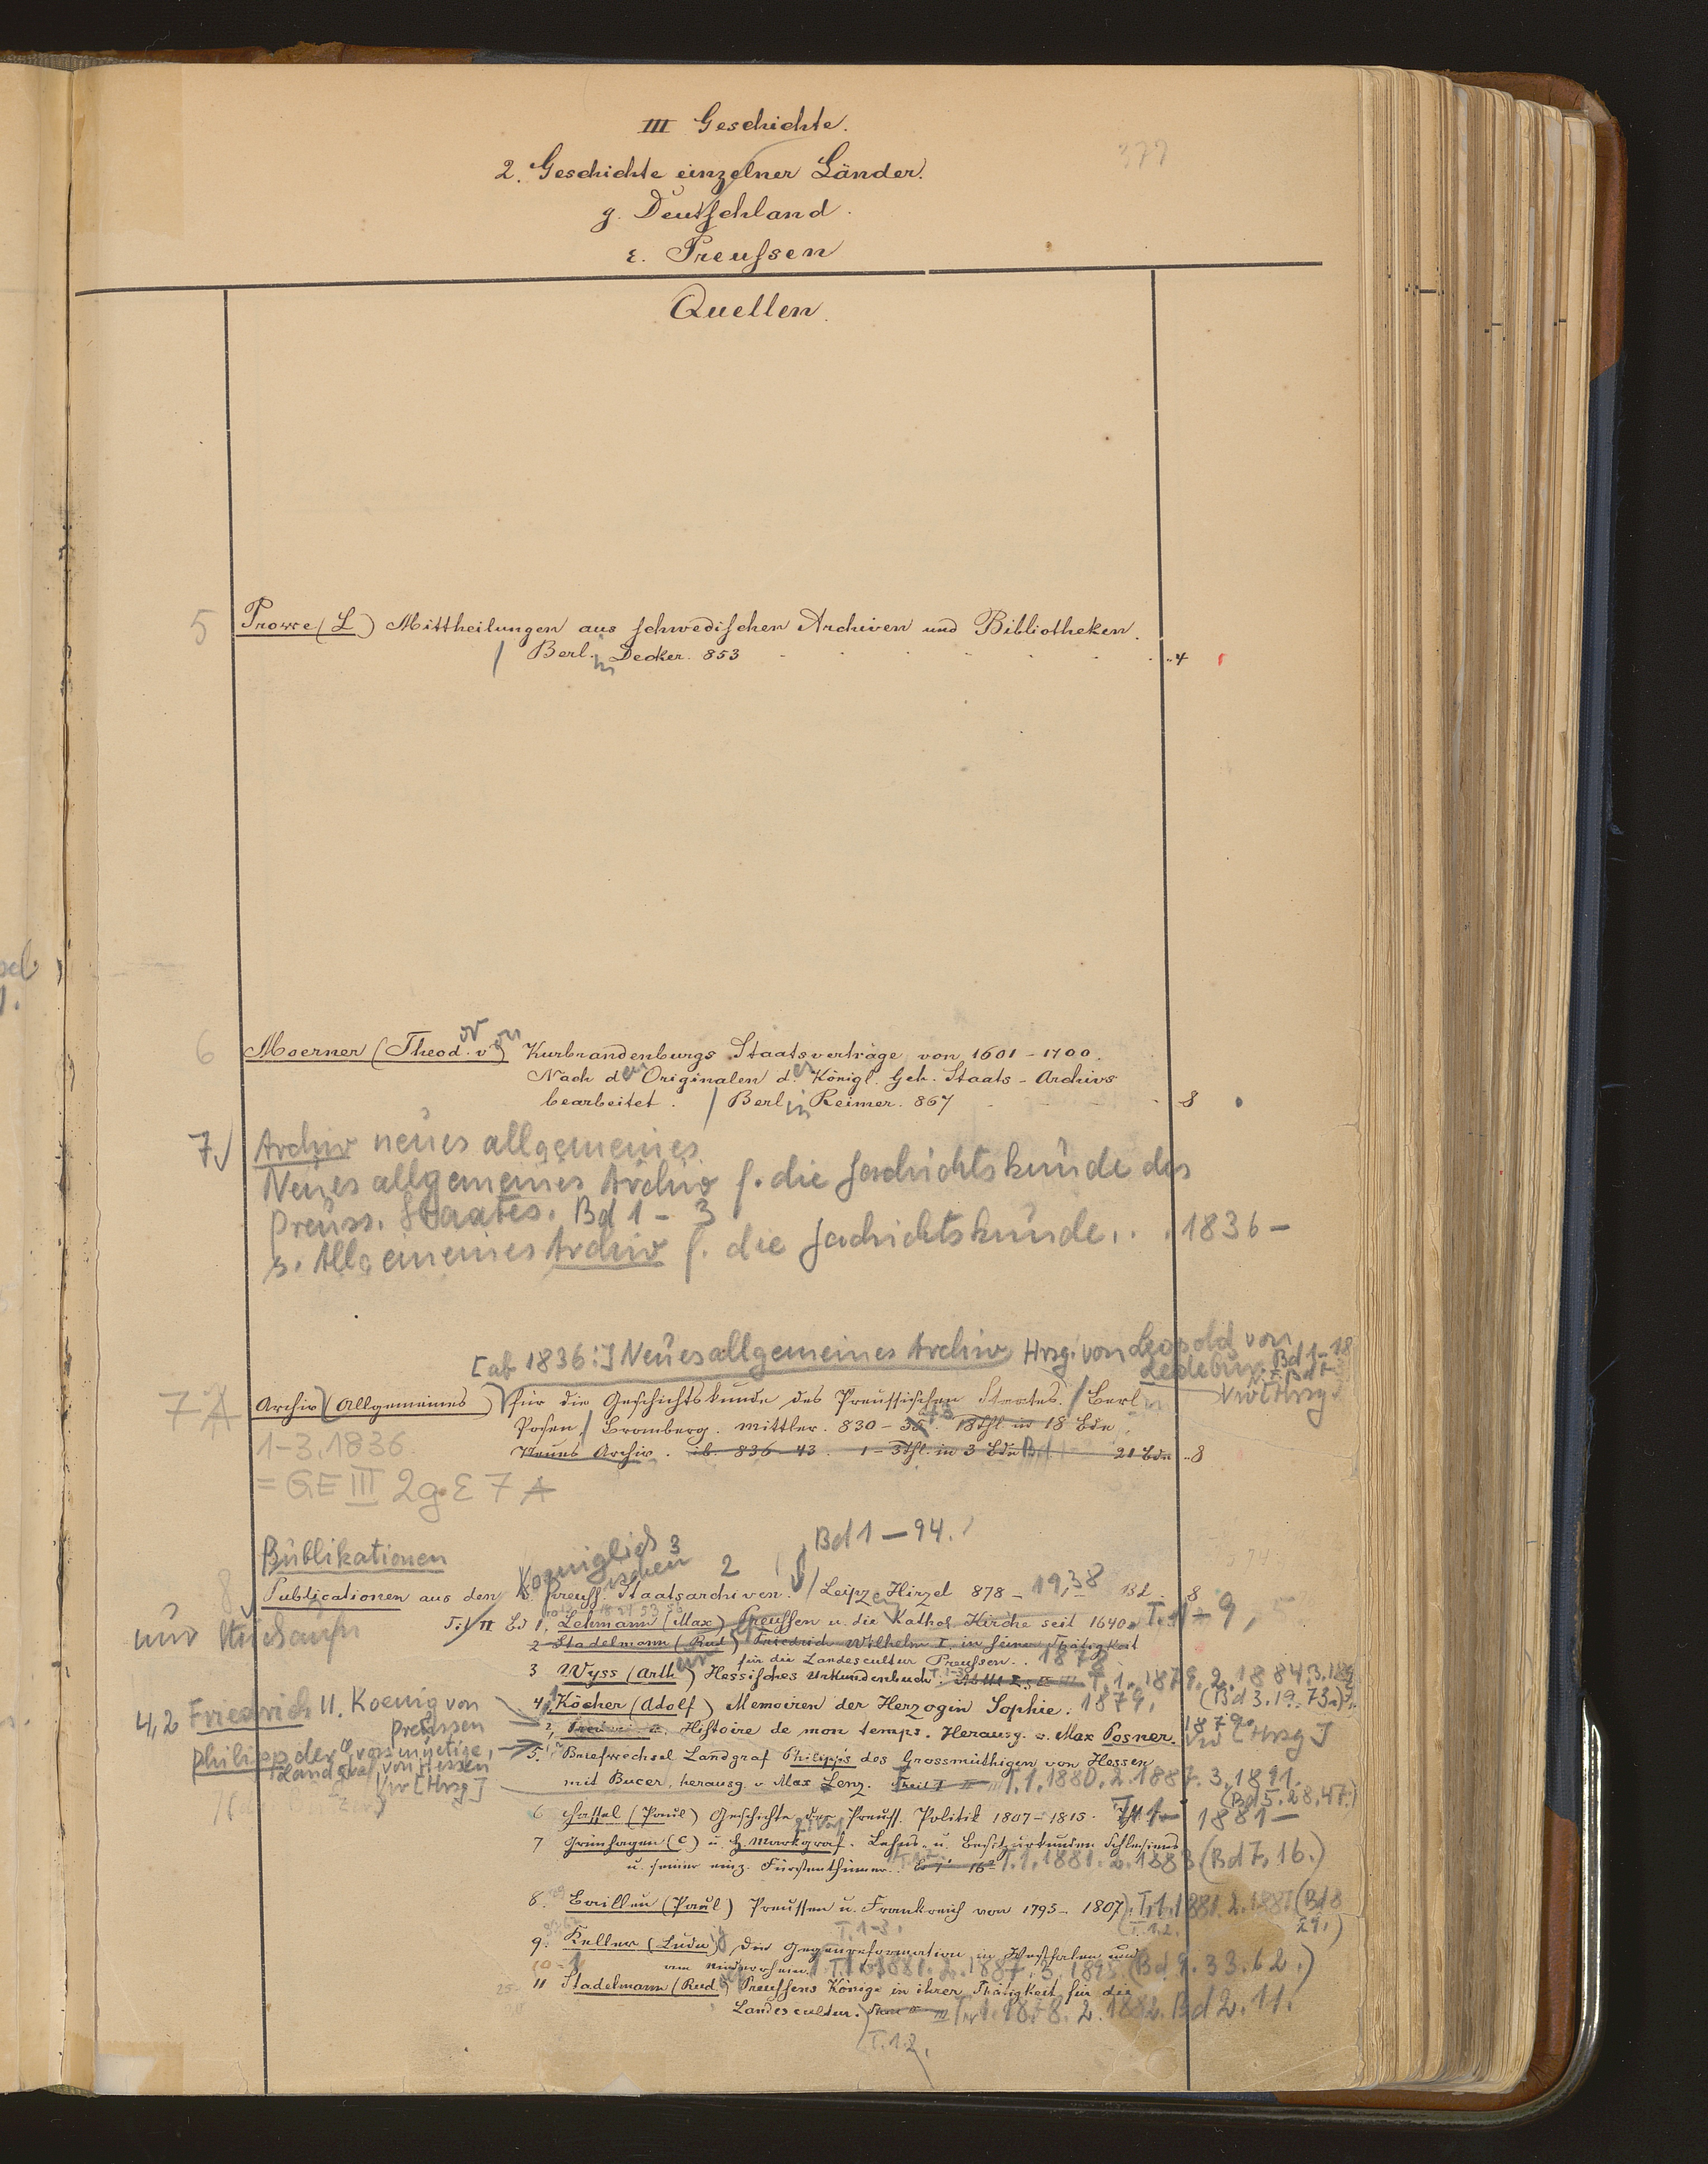 III Geschichte.
377
2. Geschichte einzelner Länder.
g. Deutschland.
ε. Preussen
Quellen.
5 Prowe (L) Mittheilungen aus schwedischen Archiven und Bibliotheken.
/ Berlin Decker. 853 4
6 Moerner (Theodor von) Kurbrandenburgs Staatsverträge von 1601-1700.
Nach den Originalen des Königl. Geh. Staats-Archivs
bearbeitet. / Berlin Reimer. 867 8
7 Archiv neues allgemeines
Neues allgemeines Archiv f. die Geschichtskunde des
Preuss. Staates. Bd 1 - 3
s. Allgemeines Archiv f. die Geschichtskunde... 1836-
[ab 1836:] Neues allgemeines Archiv Hrsg. von Leopold von
Ledebur. Bd 1-18
Vw [Hrsg]
7 A Archiv (Allgemeines) für die Geschichtskunde des Preussischen Staates. / Berl
Posen / Bromberg. Mittler. 830- 18 Thl. in 18 Bde.
1-3. 1836.
Neues Archiv. ib. 836-43. 1-3 Thl. in 3 Bde Bd 21 Bde 8
= GE III 2g. ε 7 A
Bd 1-94.
Publikationen
Koeniglich 3
ischen 2
8 Publicationen aus den K. Preuss. Staatsarchiven. / Leipz Hirzel 878-19,38 Bd. 8
Bd 1. Lehmann (Max) Preussen u. die Kathol. Kirche seit 1640. T. 1-9,
2 Stadelmann (Rud) Friedrich Wilhelm I. in seiner Thätigkeit
für die Landescultur Preussen.. 1878.
3 Wyss (Arthur) Hessisches Urkundenbuch. T. 1. 1879. 2. 1884. 3. 189
(Bd 3. 19. 73.)
4,1 Köcher (Adolf) Memoiren der Herzogin Sophie. 1879.
4,2 Friedrich II. Koenig von
Preussen
2, Histoire de mon temps. Herausg. v. Max Posner. 1879. Vw [Hrsg]
Philipp der Grossmuetige,
Landgraf von Hessen
Vw [Hrsg]
5. Briefwechsel Landgraf Philipp's des Grossmüthigen von Hessen
mit Bucer, herausg. v. Max Lenz. T. 1. 1880. 2. 1887. 3. 1891.
(Bd 5. 28. 47.)
6 Hassel (Paul) Geschichte der Preuss. Politik 1807-1815. 1881-
7 Grünhagen (C) u. H. Markgraf. Lehns- u. Besitzurkunden Schlesiens
u. seiner einz. Fürstenthümer. T. 1. 1881. 2. 1883 (Bd 7. 16.)
8. Bailleu (Paul) Preussen u. Frankreich von 1795-1807. T. 1. 1881. 2. 1887 (Bd 8
29.)
T. 1-3.
9. Keller (Ludw) Die Gegenreformation in Westfalen und
am Niederrhein. T. 1. 1881. 2. 1887. 3. 1895 (Bd 9. 33. 62.)
11 Stadelmann (Rud) Preussens Könige in ihrer Thätigkeit für die
Landescultur. T. 1. 1878. 2. 1882. Bd 2. 11.
T. 1.2.